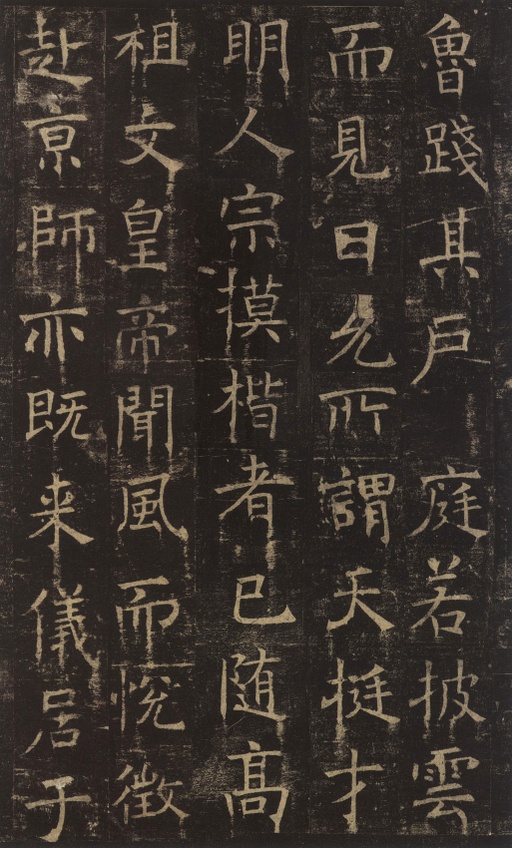 魯踐其戶庭若披雲
而見日允所謂天挺才
明人宗摸楷者已随高
祖文皇帝聞風而悅徵
赴京師亦既来儀居于